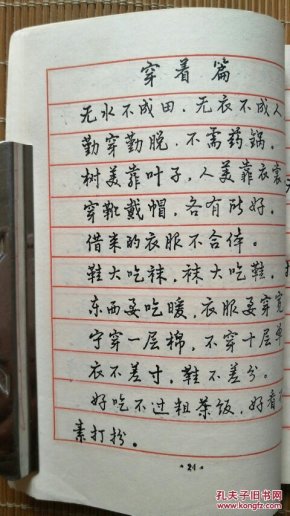 穿着篇
无水不成田，无衣不成人
勤穿勤脱，不需药锅。
树美靠叶子，人美靠衣裳
穿靴戴帽，各有所好。
借来的衣服不合体。
鞋大吃袜，袜大吃鞋，
东西要吃暖，衣服要穿宽
宁穿一层棉，不穿十层单
衣不差寸，鞋不差分。
好吃不过粗茶饭，好看
素打扮。
·21·
孔夫子旧书网